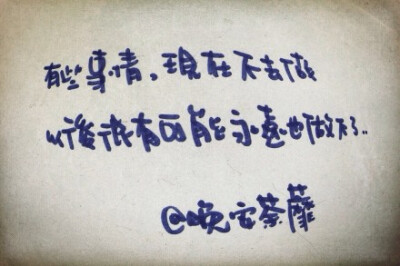 有些事情，現在不去做
以後很有可能永遠也做不了..
@晚安荼蘼